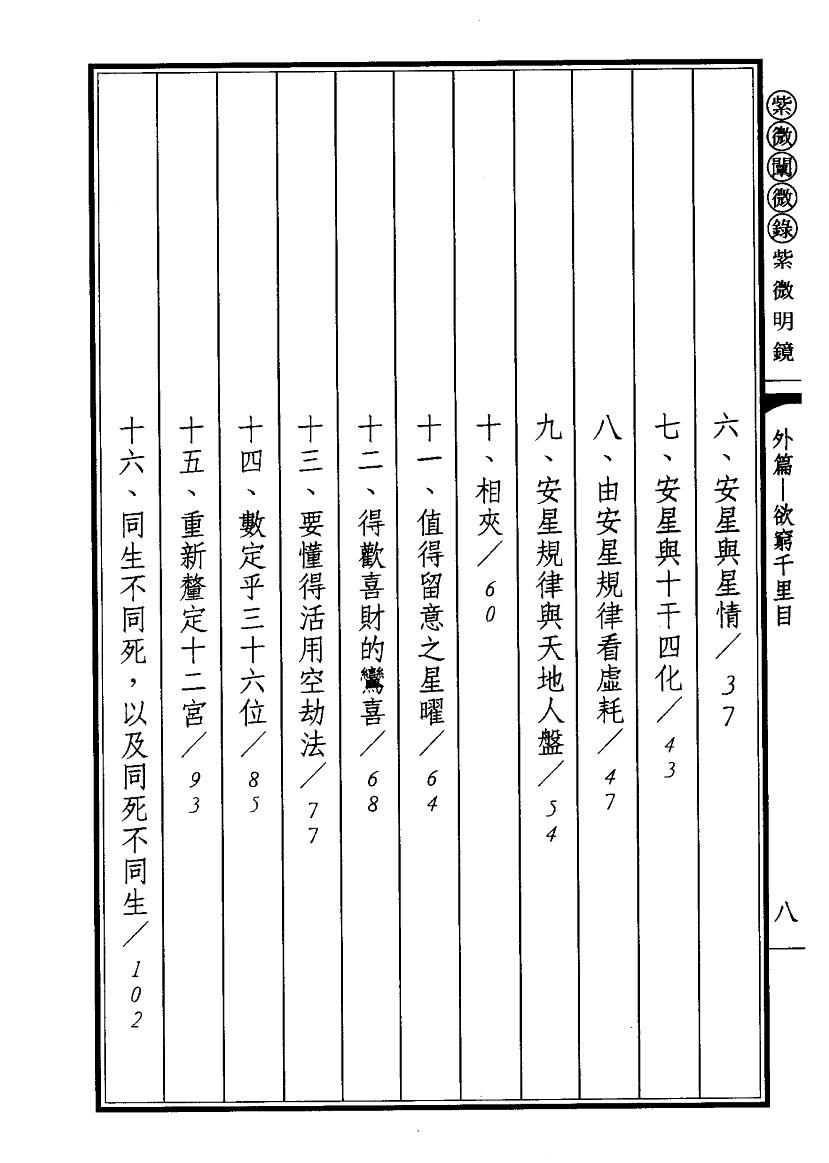 紫微闡微錄 紫微明鏡
外篇—欲窮千里目
八
六、安星與星情／37
七、安星與十干四化／43
八、由安星規律看虛耗／47
九、安星規律與天地人盤／54
十、相夾／60
十一、值得留意之星曜／64
十二、得歡喜財的鸞喜／68
十三、要懂得活用空劫法／77
十四、數定乎三十六位／85
十五、重新釐定十二宮／93
十六、同生不同死，以及同死不同生／102